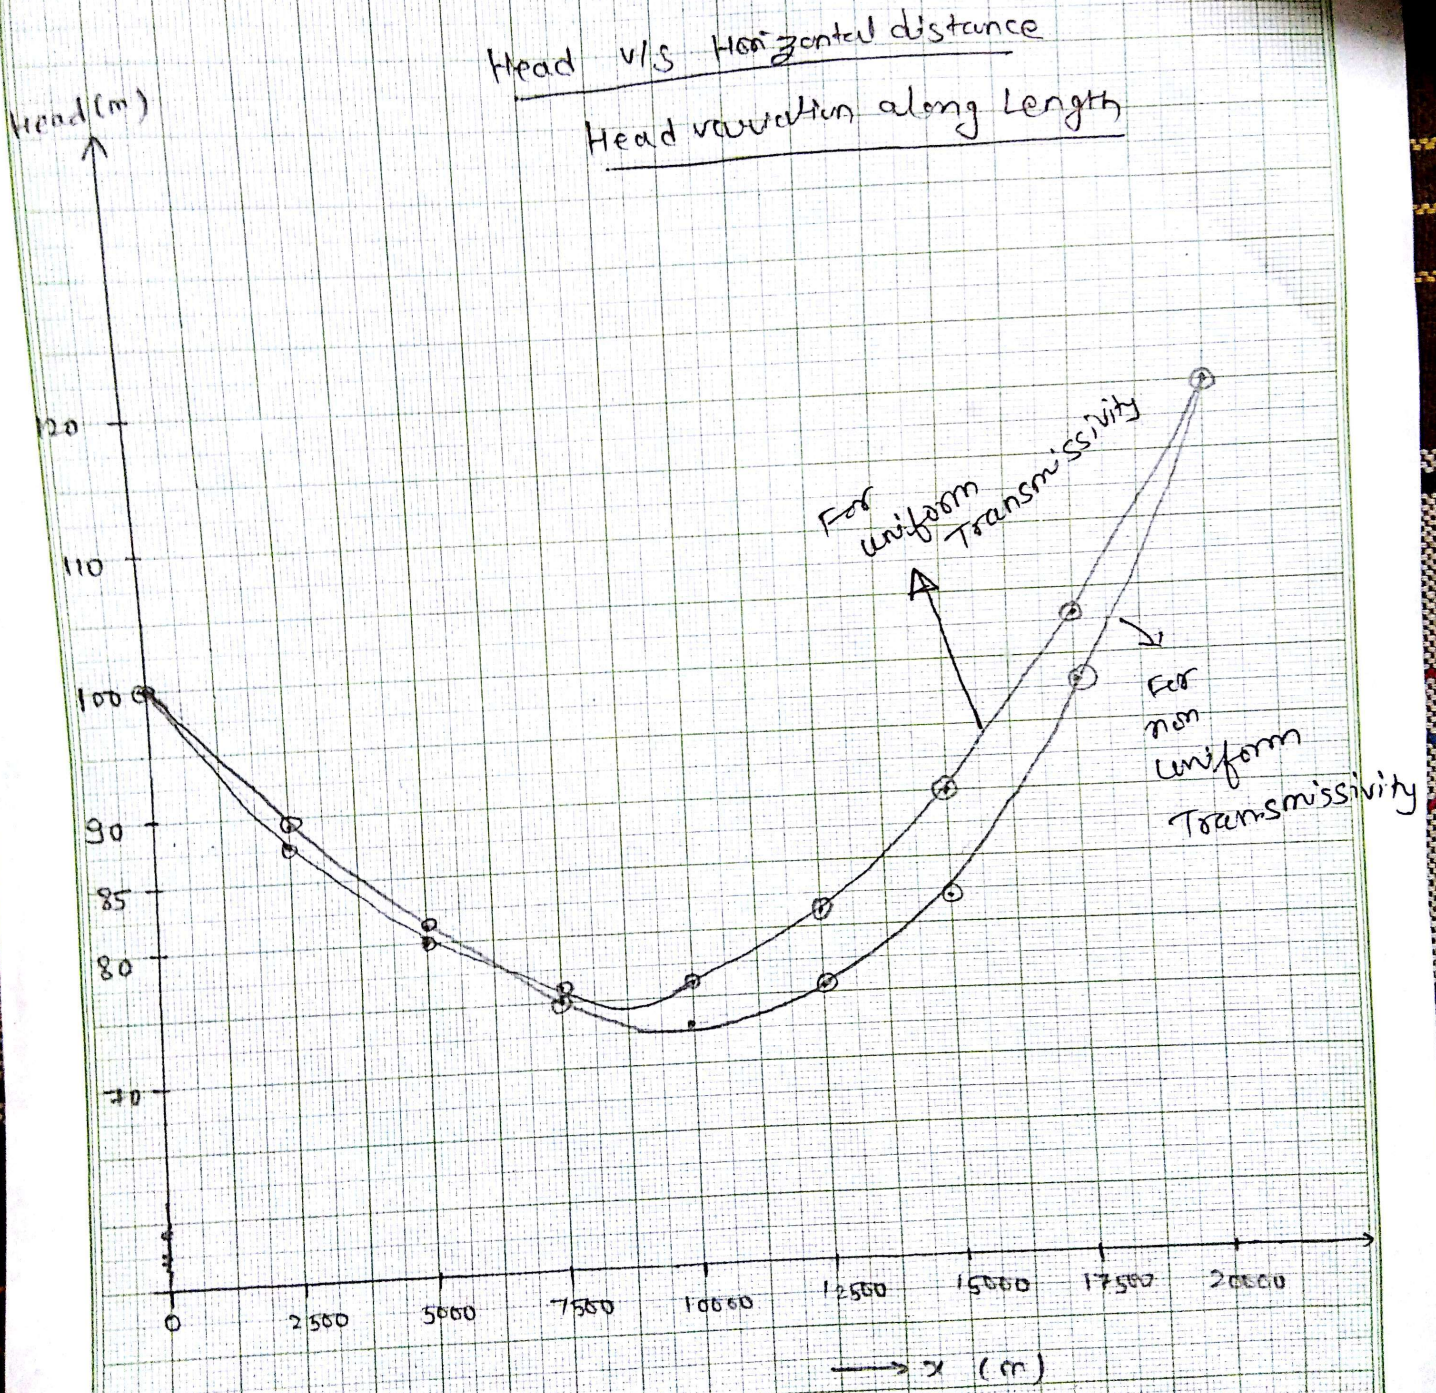 Head v/s Horizontal distance
Head variation along Length
Head (m)
120
110
100
90
85
80
70
For
uniform
Transmissivity
For
non
uniform
Transmissivity
0
2500
5000
7500
10000
12500
15000
17500
20000
x (m)